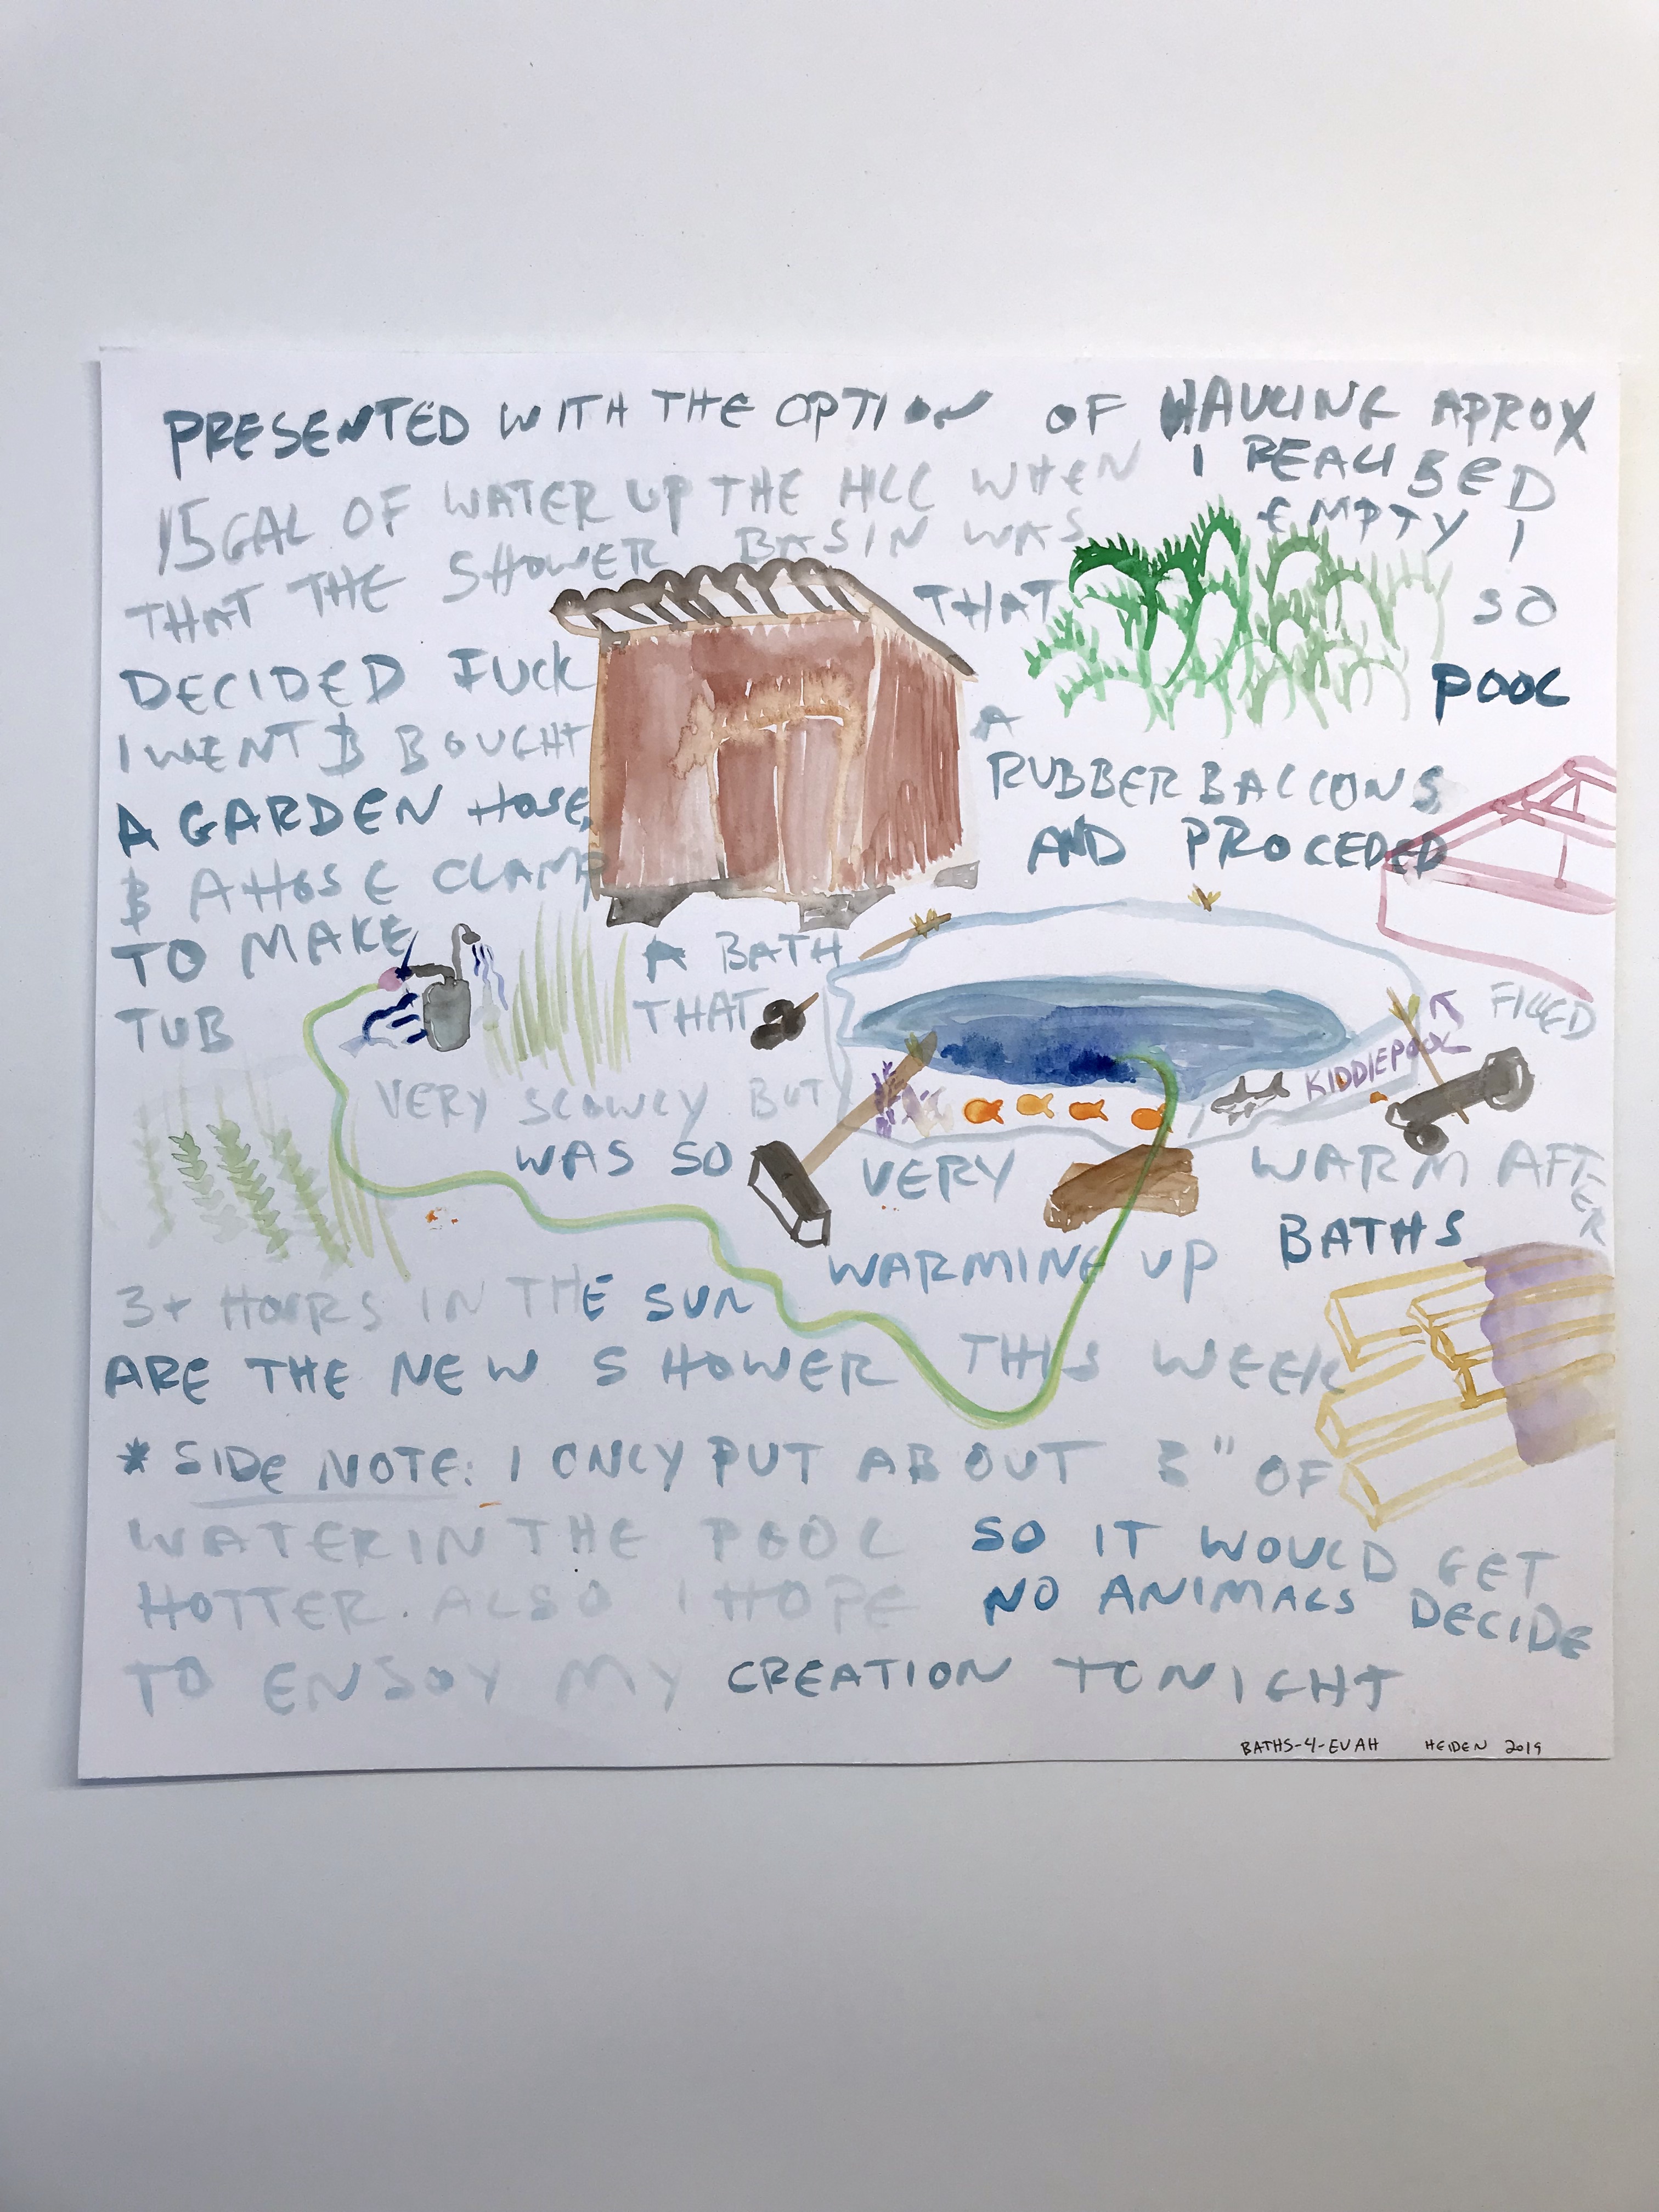 PRESENTED WITH THE OPTION OF HAULING APROX
15 GAL OF WATER UP THE HILL WHEN I REALISED
THAT THE SHOWER BASIN WAS EMPTY I
DECIDED FUCK THAT SO
I WENT & BOUGHT A POOL
A GARDEN HOSE, RUBBER BALLOONS
& A HOSE CLAMP AND PROCEDED
TO MAKE A BATH
TUB THAT FILLED
KIDDIEPOOL
VERY SLOWLY BUT
WAS SO VERY WARM AFTER
WARMING UP BATHS
3+ HOURS IN THE SUN
ARE THE NEW SHOWER THIS WEEK
* SIDE NOTE: I ONLY PUT ABOUT 3" OF
WATER IN THE POOL SO IT WOULD GET
HOTTER. ALSO I HOPE NO ANIMALS DECIDE
TO ENJOY MY CREATION TONIGHT
BATHS-4-EVAH HEIDEN 2019